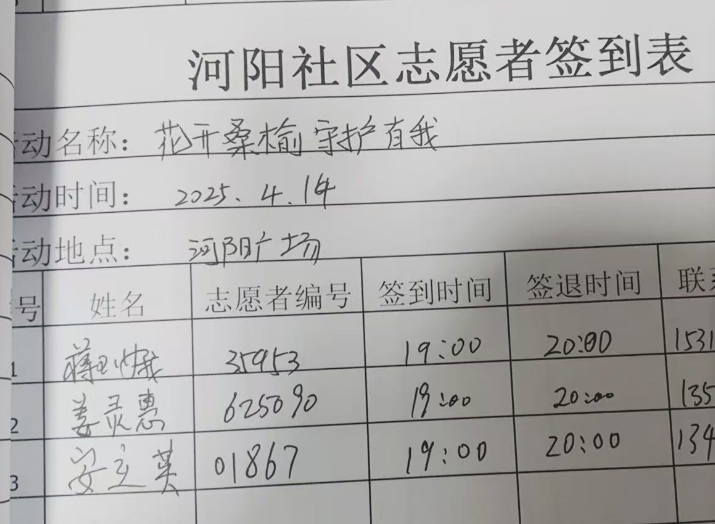 河阳社区志愿者签到表
活动名称：花开桑榆 守护有我
活动时间：2025.4.14
活动地点：河阳广场
号 姓名 志愿者编号 签到时间 签退时间 联系
1 35953 19:00 20:00 1531
2 姜灵惠 625090 19:00 20:00 135
3 安立英 01867 19:00 20:00 134